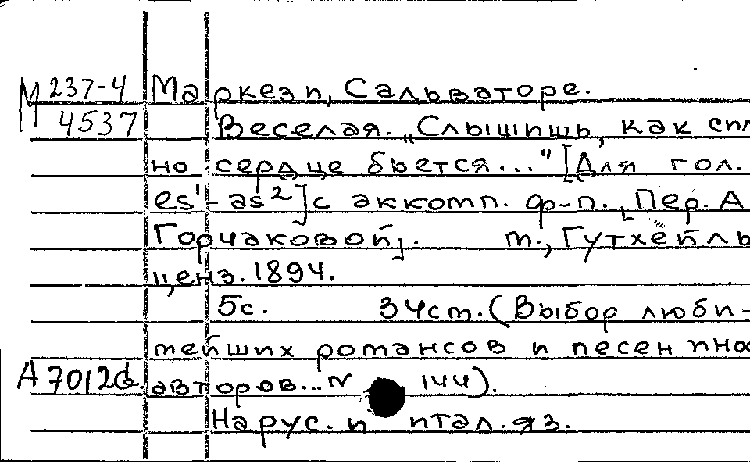 М 237-4 Маркези, Сальваторе.
4537 Веселая. „Слышишь, как сил
но сердце бьется..." [Для гол.
es¹-as²] с аккомп. ф-п. [Пер. А
Горчаковой]. М., Гутхейль
ценз. 1894.
5с. 34см. (Выбор люби-
мейших романсов и песен ино
А 7012 авторов... N 144).
На рус. и итал. яз.